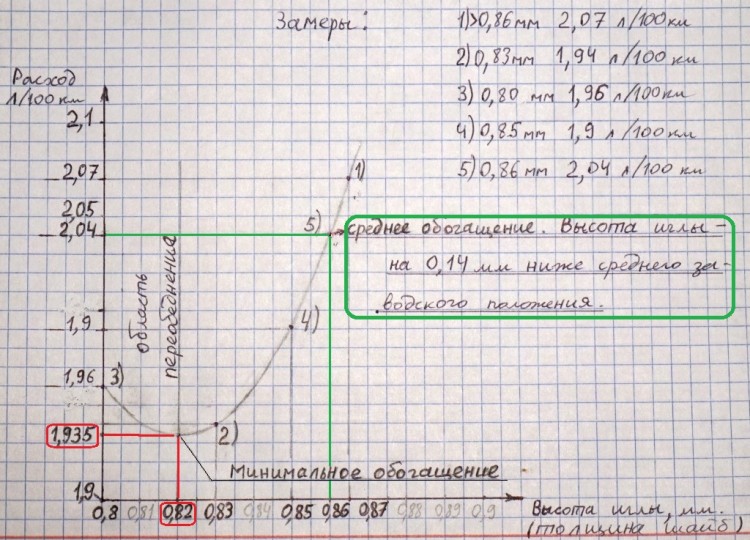 Замеры:
1)>0,86 мм 2,07 л/100км
2) 0,83 мм 1,94 л/100 км
3) 0,80 мм 1,96 л/100км
4) 0,85 мм 1,9 л/100 км
5) 0,86 мм 2,04 л/100 км
Расход
л/100 км
2,1
2,07
2,05
2,04
1,9
1,96
1,935
1,9
1)
5)
4)
3)
2)
среднее обогащение. Высота иглы –
на 0,14 мм ниже среднего за-
водского положения.
область
переобеднения
Минимальное обогащение
0,8 0,81 0,82 0,83 0,84 0,85 0,86 0,87 0,88 0,89 0,9
Высота иглы, мм.
(толщина шайб)